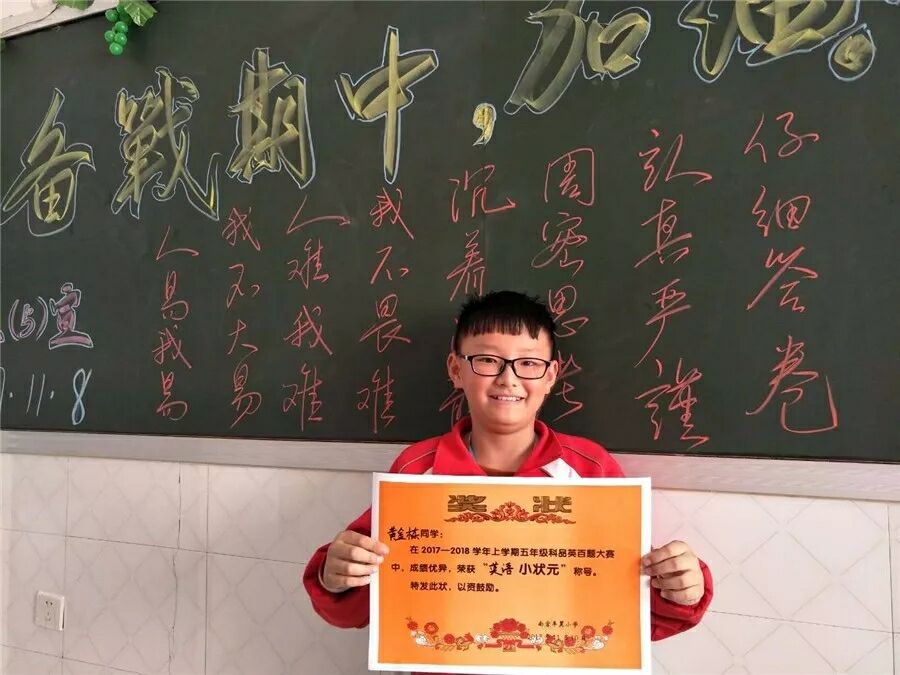 备戰期中,加油。
人易我易
我不大易
人难我难
我不畏难
沉着
周密思
认真严謹
仔细答卷
(5)宣
11.8
奖状
黄金栋同学：
在 2017—2018 学年上学期五年级科品英百题大赛
中，成绩优异，荣获“英语 小状元”称号。
特发此状，以资鼓励。